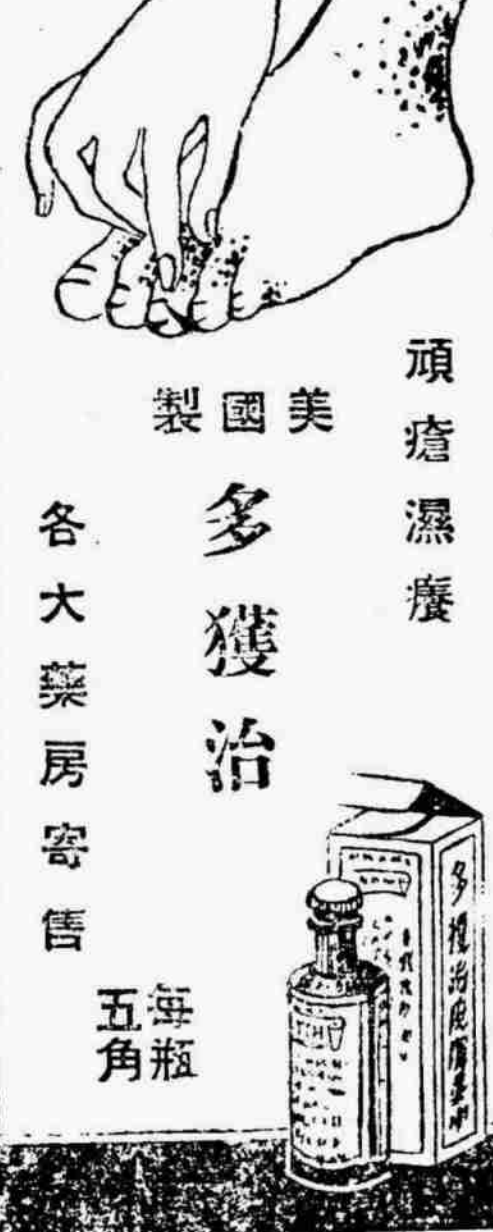 頑瘡濕癢
美國製
多獲治
各大藥房寄售
每瓶
五角
多獲治皮膚